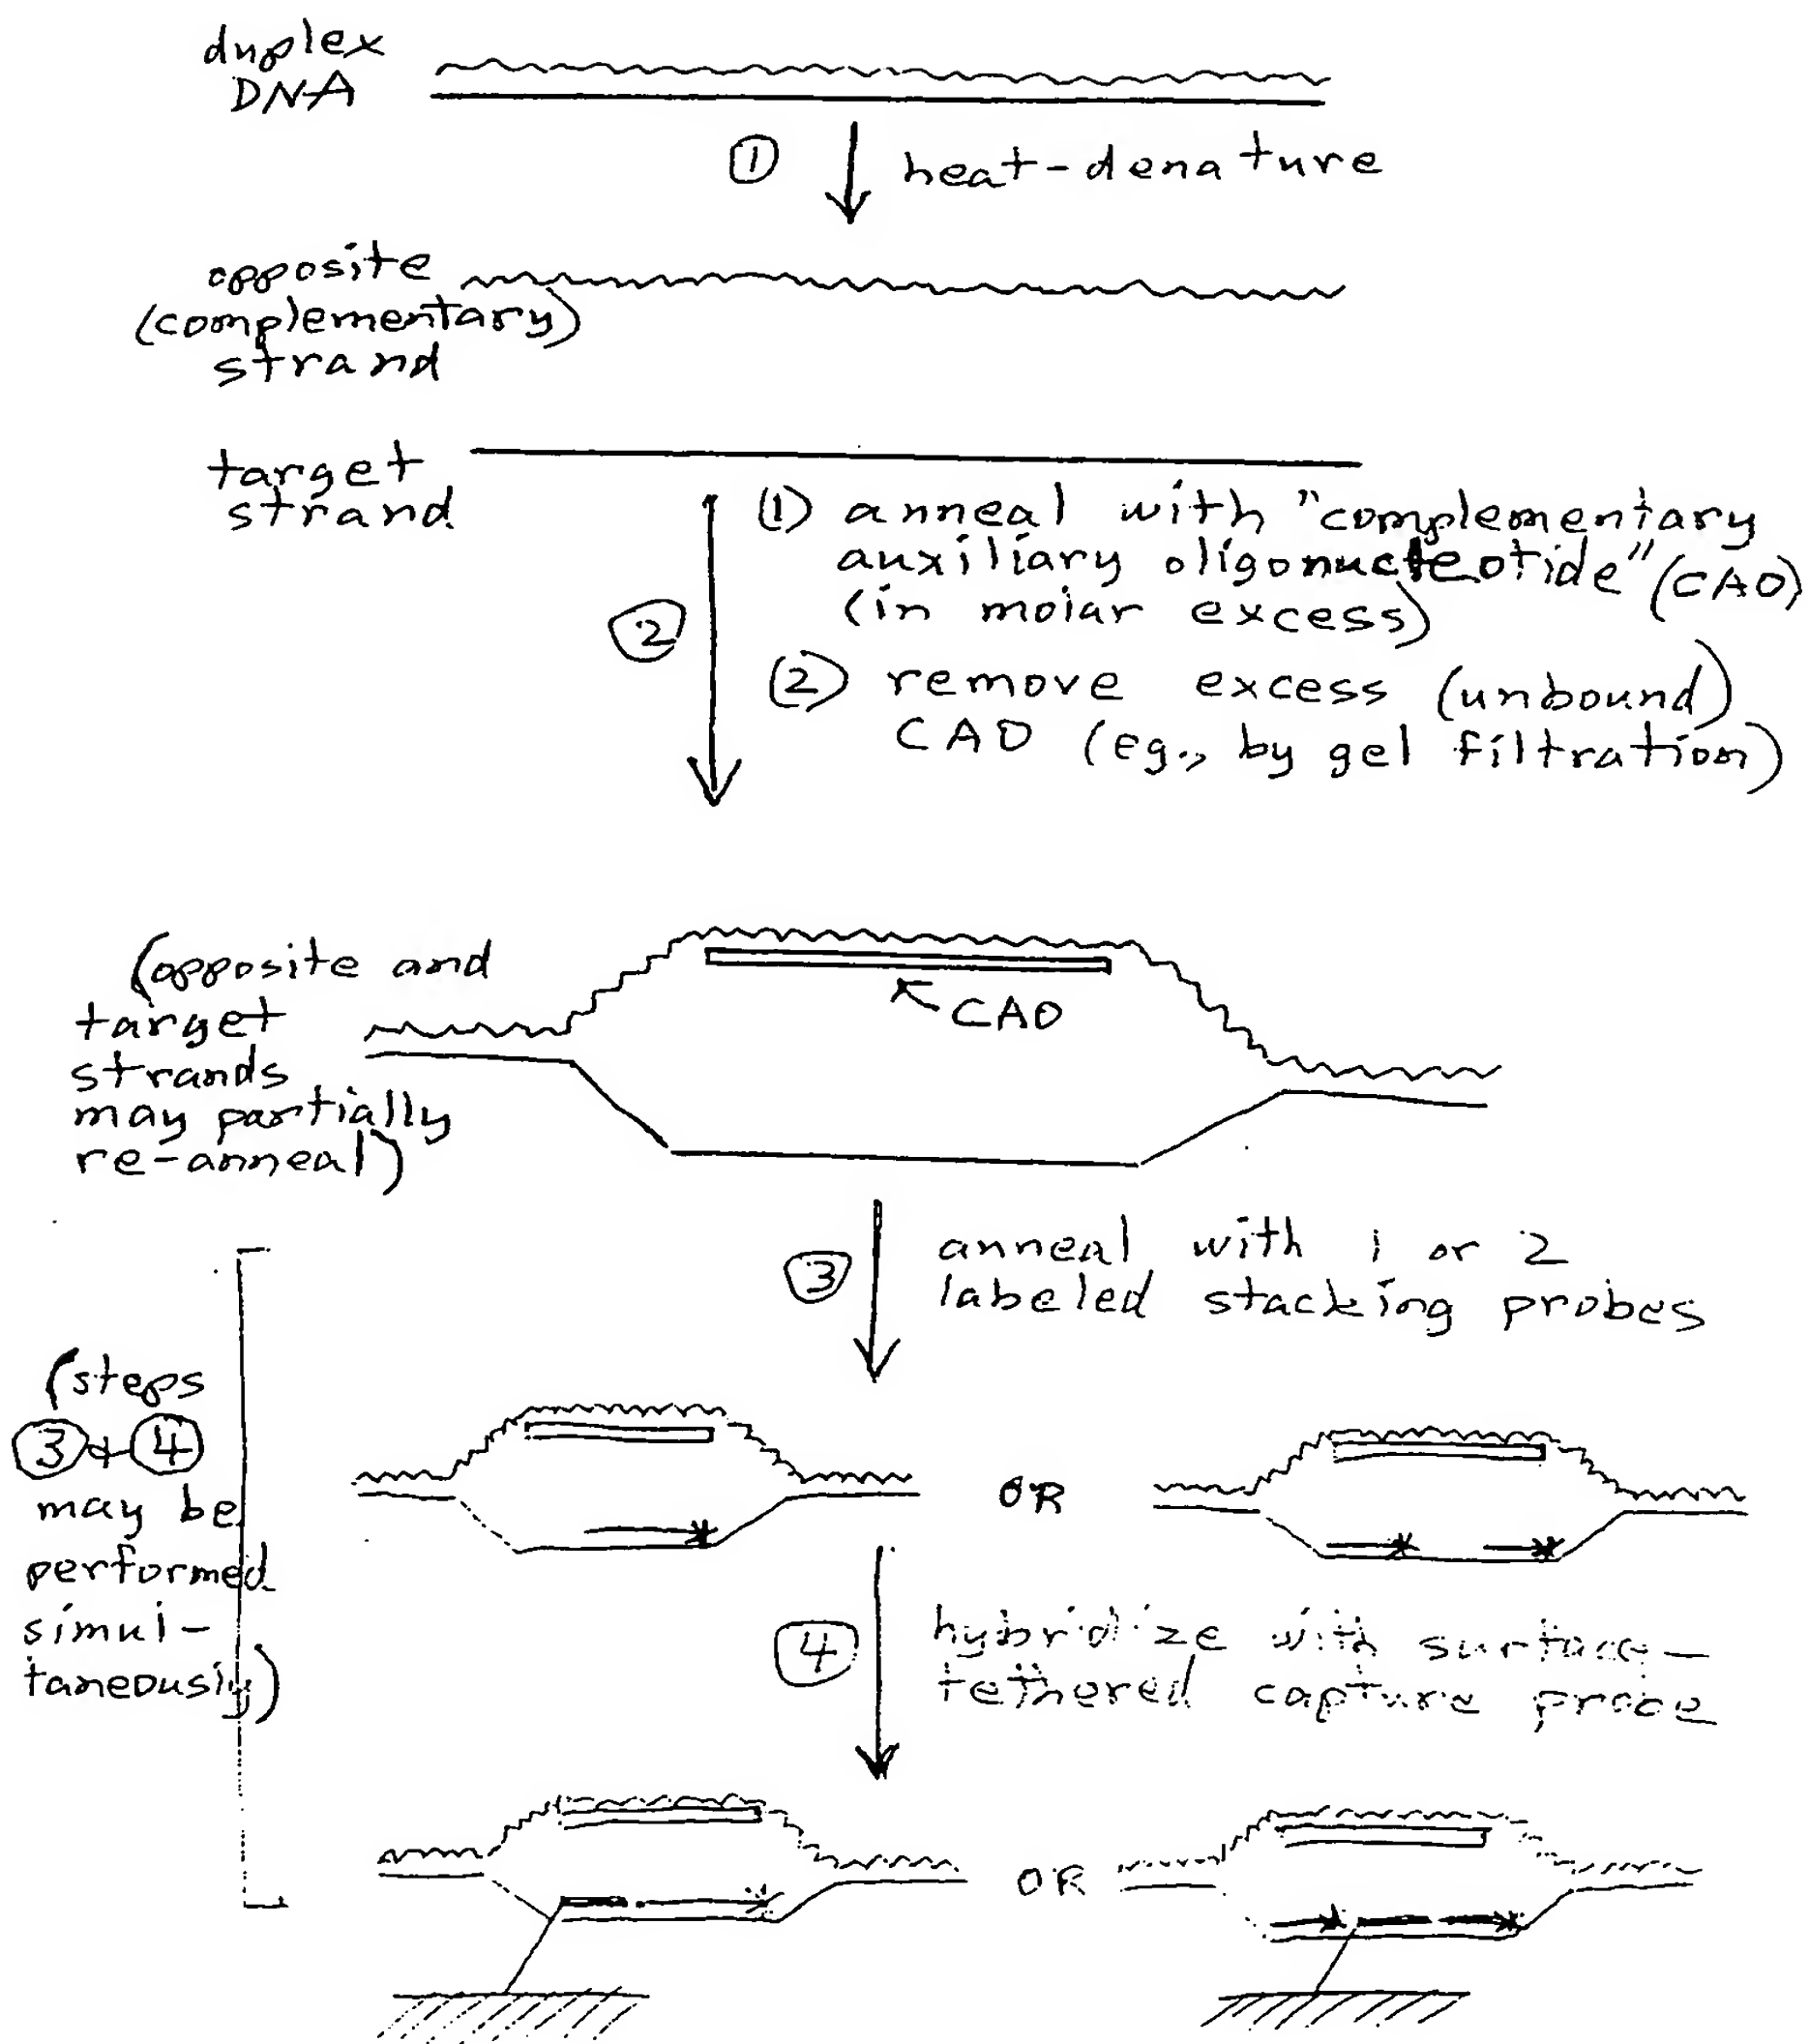 duplex
DNA
① heat-denature
opposite
(complementary)
strand
target
strand
② (1) anneal with "complementary
auxiliary oligonucleotide" (CAO)
(in molar excess)
(2) remove excess (unbound)
CAO (Eg., by gel filtration)
(opposite and
target
strands
may partially
re-anneal)
CAO
③ anneal with 1 or 2
labeled stacking probes
(steps
③ & ④
may be
performed
simul-
taneously)
OR
④ hybridize with surface-
tethered capture probe
OR